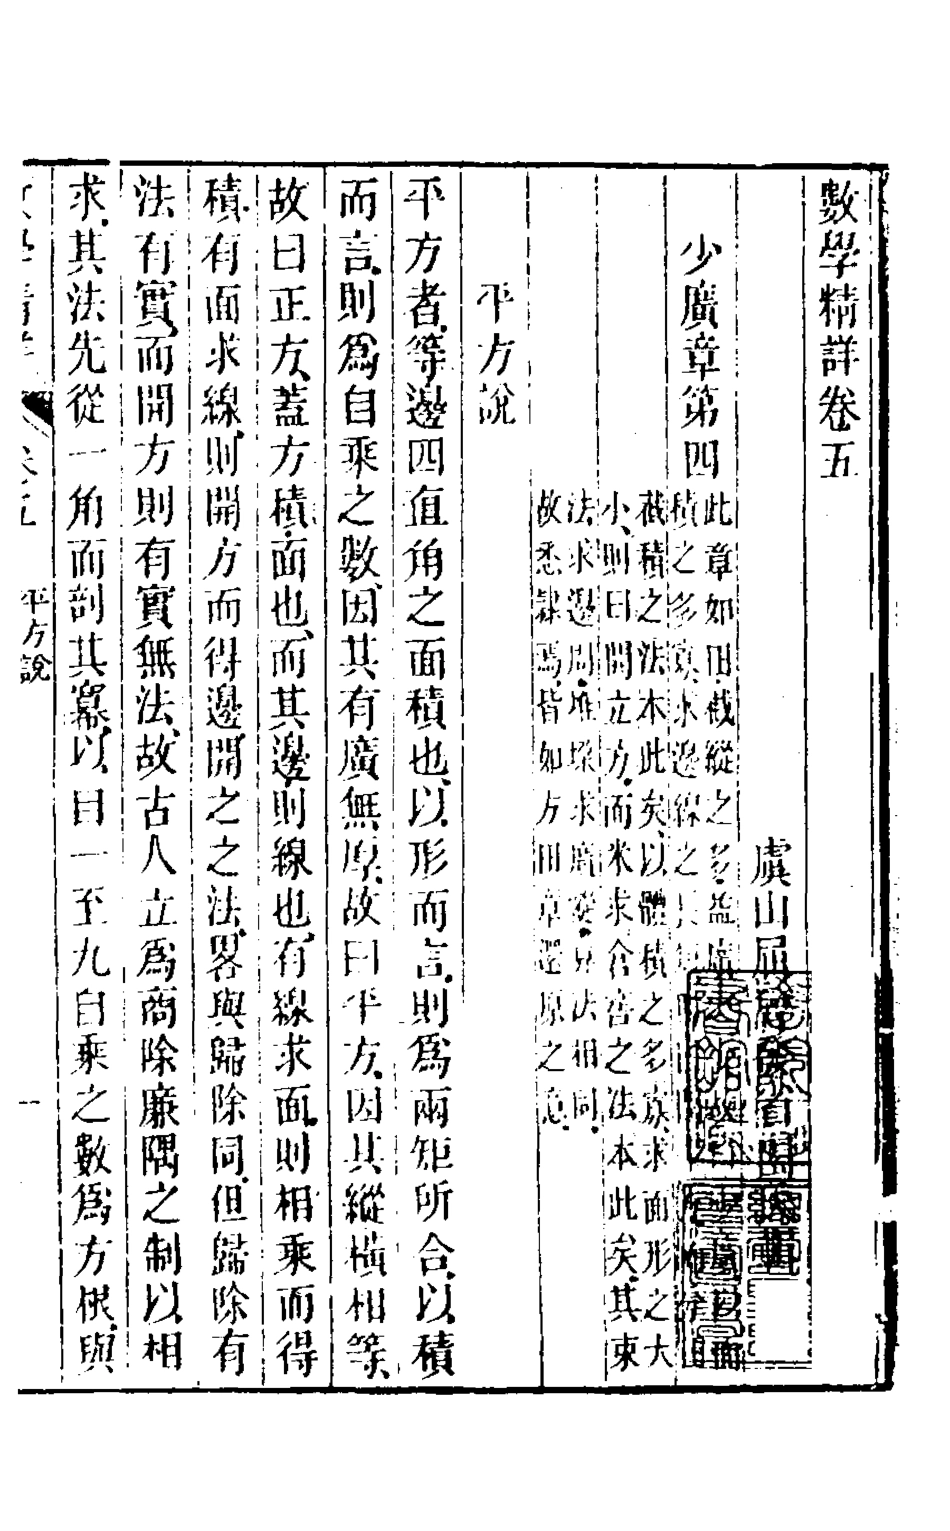 數學精詳卷五
虞山屈曾發省園輯
少廣章第四
此章如田截縱之多益廣
積之多寡求邊線之長短
截積之法本此矣以體積之多寡求面形之大
小則曰開立方而米求倉窖之法本此矣其束
法求邊周堆垜求廣變其法相同
故悉隸焉皆如方田章還原之意
平方說
平方者等邊四直角之面積也以形而言則爲兩矩所合以積
而言則爲自乘之數因其有廣無厚故曰平方因其縱橫相等
故曰正方蓋方積面也而其邊則線也有線求面則相乘而得
積有面求線則開方而得邊開之之法畧與歸除同但歸除有
法有實而開方則有實無法故古人立爲商除廉隅之制以相
求其法先從一角而剖其冪以自一至九自乘之數爲方根與
平方說
一